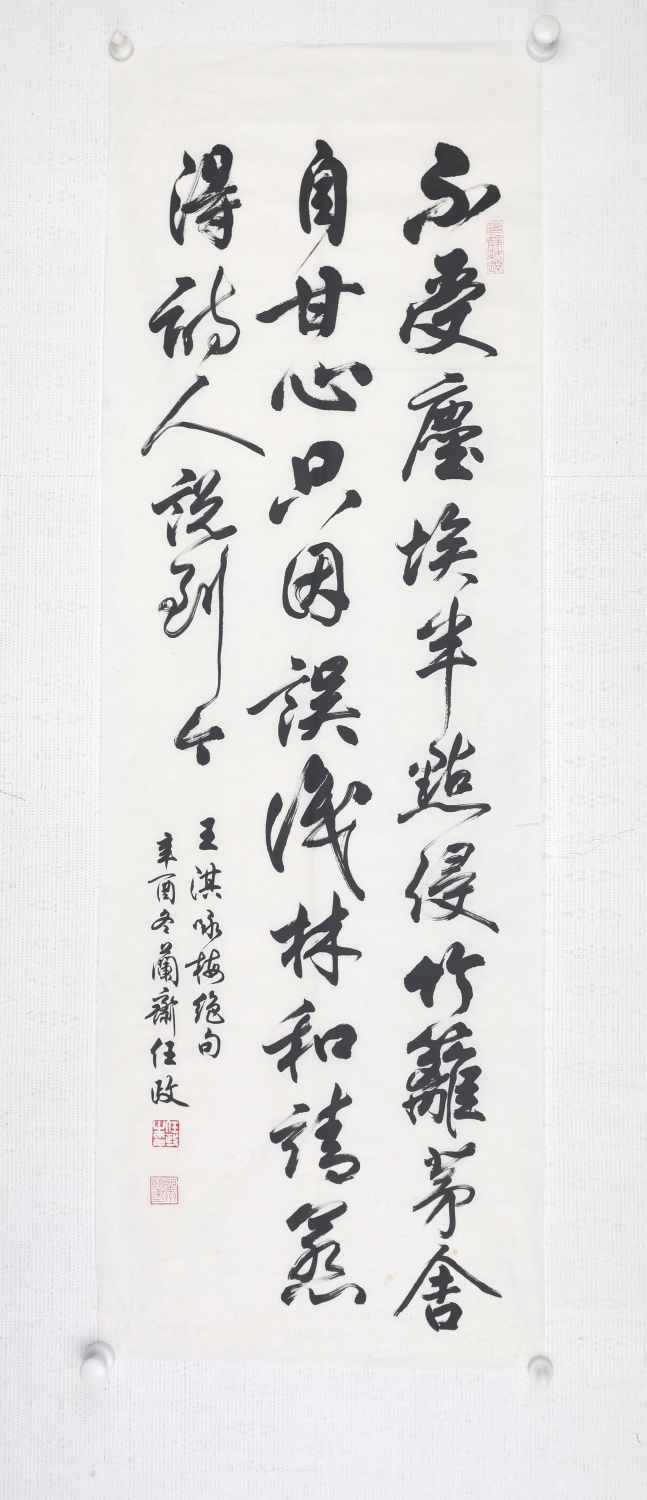 不受塵埃半點侵竹籬茅舍
自甘心只因誤識林和靖惹
得詩人說到今
王淇咏梅絕句
辛酉冬蘭齋任政